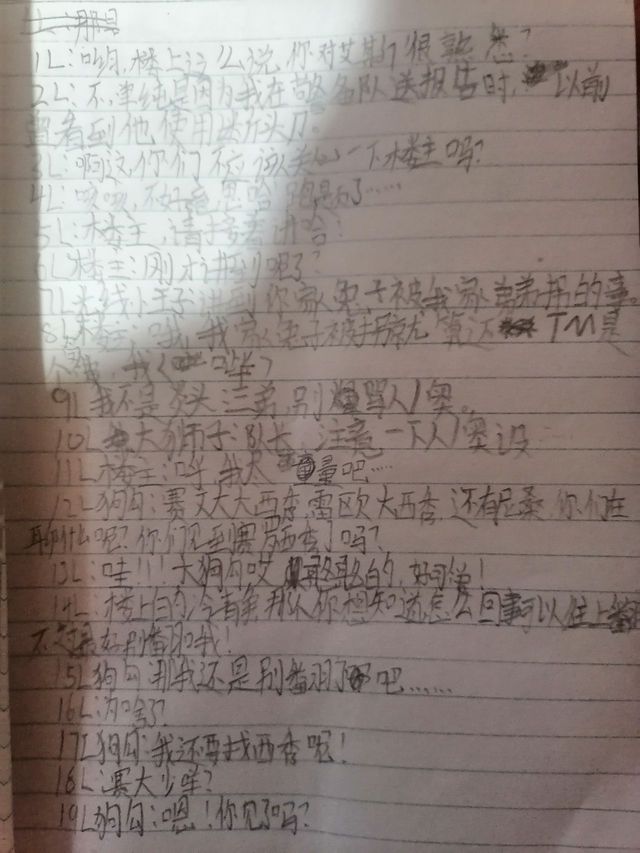 1L:哟,楼上这么说,你对艾斯很熟悉?
2L:不,单纯是因为我在警备队送报告时,以前
看到他使用头刀。
3L:啊这,你们不应该关心一下楼主吗?
4L:咳咳,不好意思哈,跑题了……
5L:楼主,请接着讲哈:
6L楼主:刚才讲到哪了?
7L 讲到你家兔子被我家弟弟拐的事
8L楼主:哦,我家兔子被拐就算了 TM是
我
9L我不是 三弟,别骂人/奥。
10L大狮子:队长,注意一下人/奥设
11L楼主:呼,我尽量吧……
12L狗勾:赛文大大西秀,雷欧大西秀,还有尼桑,你们在
聊什么呢?你们见到赛罗西秀了吗?
13L:哇!!!大狗勾哎,憨憨的,好可爱!
14L:楼上的冷静,那么你想知道怎么回事可以往上翻
不过最好别翻
15L狗勾:那我还是别翻了吧……
16L:为啥?
17L狗勾:我还要找西秀呢!
18L:赛大少哇?
19L狗勾:嗯!你见了吗?